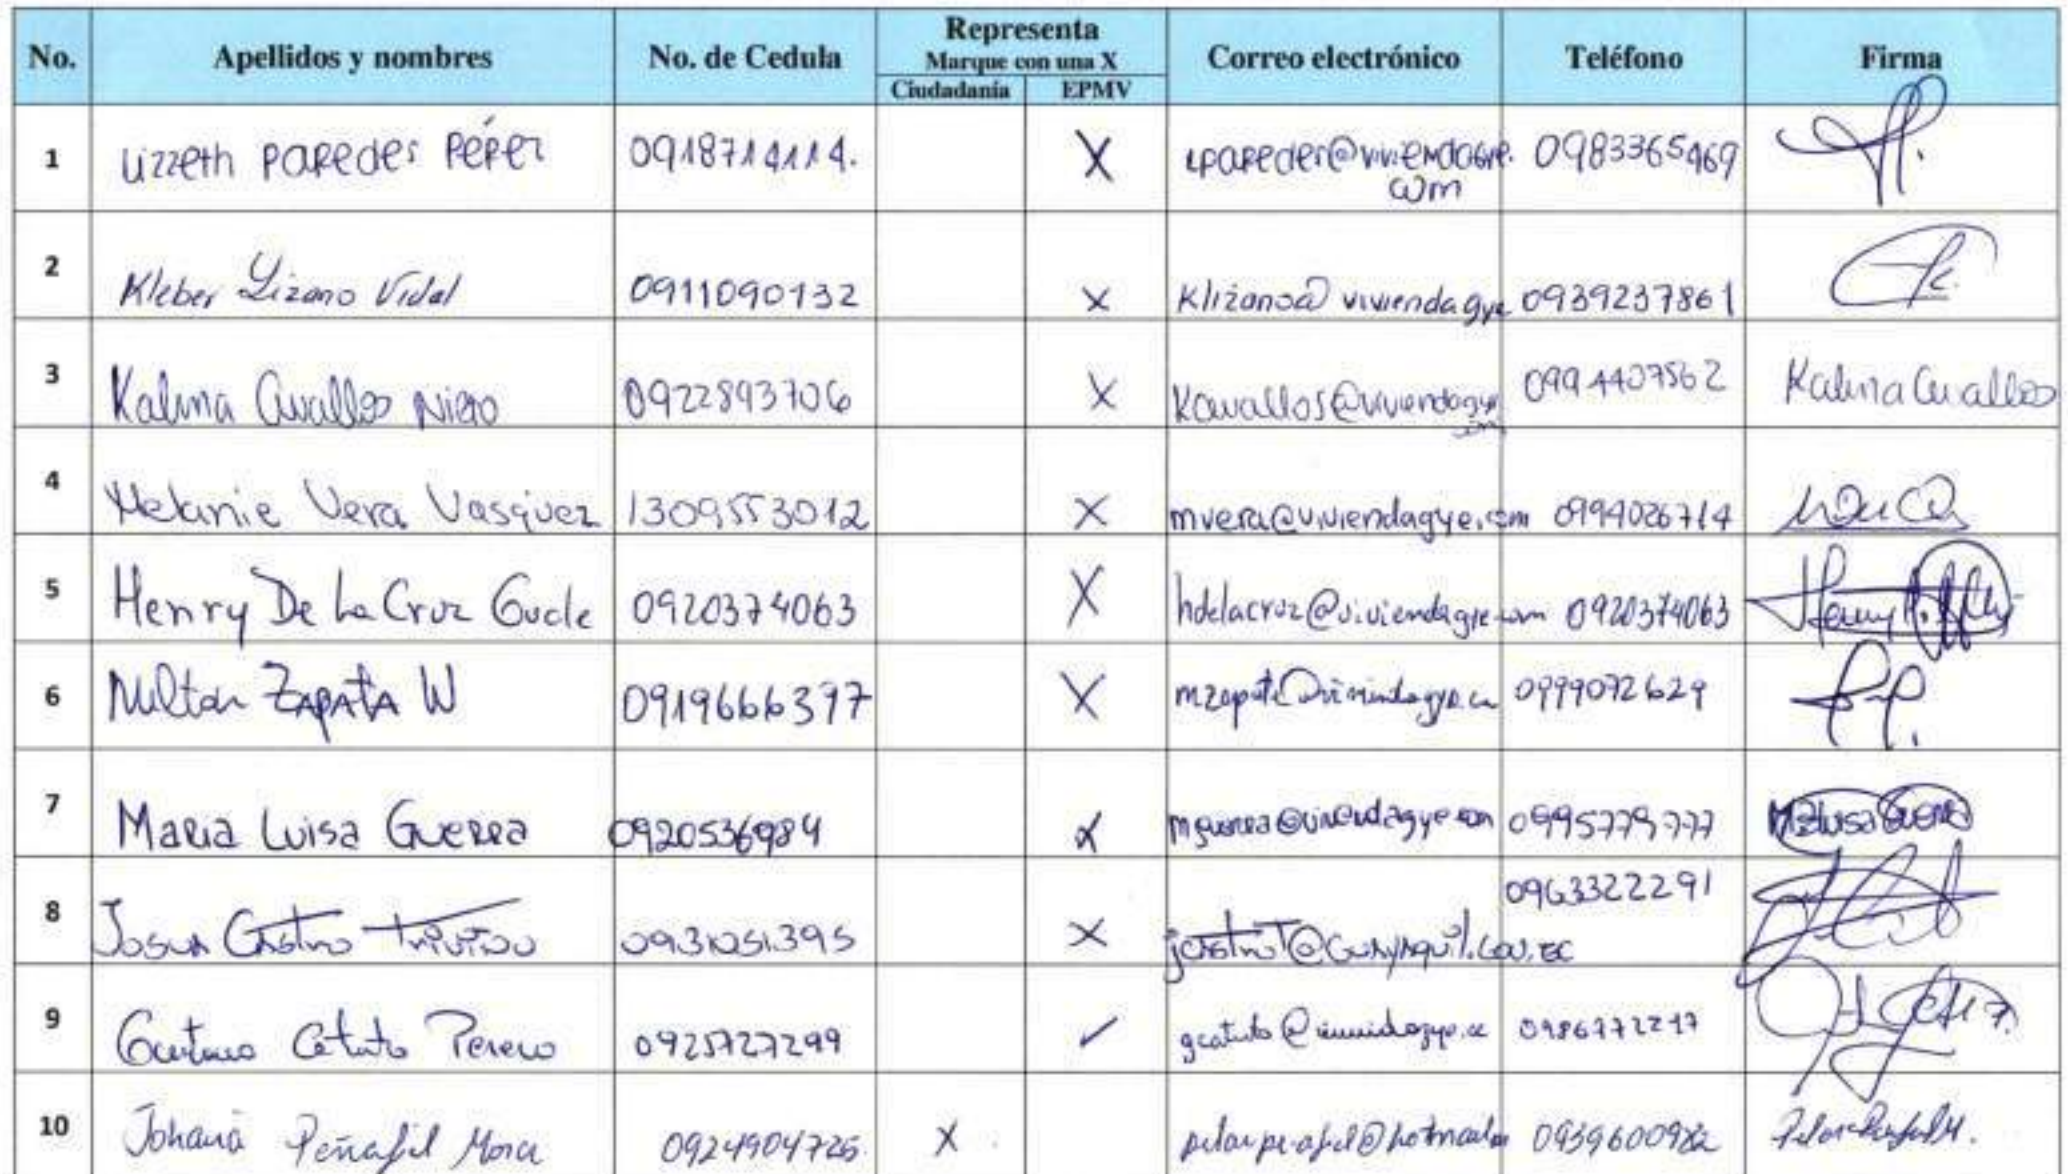 No. Apellidos y nombres No. de Cedula Representa Correo electrónico Teléfono Firma
Marque con una X
Ciudadanía EPMV
1 Lizzeth Paredes Pérez 0918714114. X lparedes@viviendagye. 0983365469
com
2 Kleber Lizano Vidal 0911090132 X Klizano@viviendagye 0939237861
3 Kalina Cevallos Nieto 0922893706 X Kcevallos@viviendagye 0994407562 Kalina Cevallos
com
4 Melanie Vera Vasquez 1309553012 X mvera@viviendagye.com 0994026714
5 Henry De La Cruz 0920374063 X hdelacruz@viviendagye.com 0920374063
6 Milton Zapata W 0919666397 X mzapata@viviendagye. 0999072629
7 Maria Luisa Guerra 0920536984 X mguerra@viviendagye.com 0995779777 Ma Luisa Guerra
8 Josue Castro Triviño 0931051395 X jcastrot@Guayaquil.gov.ec 0963322291
9 Gustavo Catuto 0925727299 ✓ gcatuto@viviendagye. 0986772217
10 Johana Peñafiel Mora 0924904726 X 0939600982